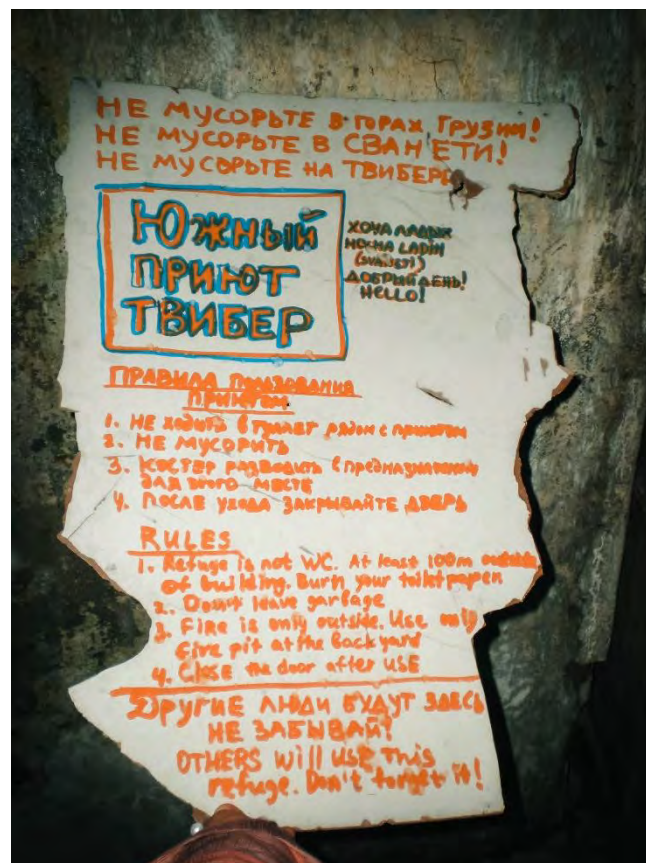 НЕ МУСОРЬТЕ В ГОРАХ ГРУЗИИ!
НЕ МУСОРЬТЕ В СВАНЕТИ!
НЕ МУСОРЬТЕ НА ТВИБЕРЕ
ЮЖНЫЙ
ПРИЮТ
ТВИБЕР
ХОЧА ЛАДЕХ
HOCHA LADIH
(SVANETI)
ДОБРЫЙ ДЕНЬ!
HELLO!
ПРАВИЛА ПОЛЬЗОВАНИЯ
ПРИЮТОМ
1. НЕ ХОДИТЬ В ТУАЛЕТ РЯДОМ С ПРИЮТОМ
2. НЕ МУСОРИТЬ
3. КОСТЕР РАЗВОДИТЬ В ПРЕДНАЗНАЧЕННОМ
ДЛЯ ЭТОГО МЕСТЕ
4. ПОСЛЕ УХОДА ЗАКРЫВАЙТЕ ДВЕРЬ
RULES
1. Refuge is not WC. At least 100m outside
of building. Burn your toilet papen
2. Don't leave garbage
3. FIRE is only outside. Use only
fire pit at the backyard
4. CLOSE the door after USE
ДРУГИЕ ЛЮДИ БУДУТ ЗДЕСЬ
НЕ ЗАБЫВАЙ!
OTHERS Will USE This
refuge. Don't forget it!